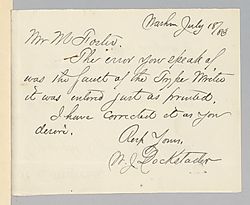 Washn July 18/88
Mr. M Foster.
The error you speak of
was the fault of the Type Writer
it was entered just as printed.
I have corrected it as you
desire.
Resp Yours,
W. J. Dockstader